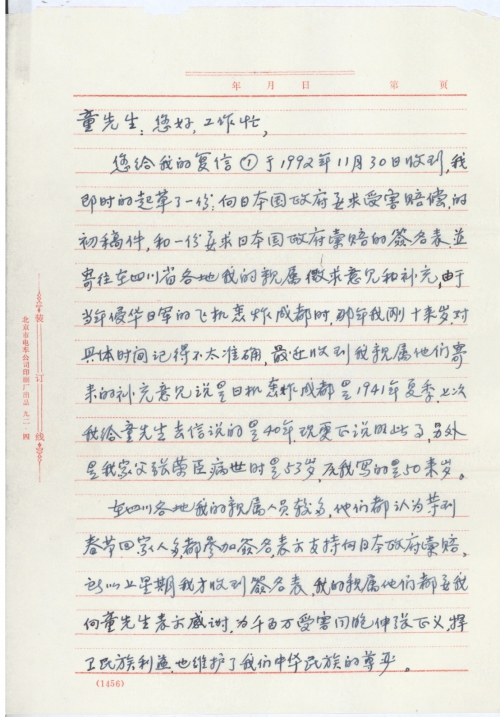 年 月 日 第 页
童先生:您好,工作忙,
您给我的复信①于1992年11月30日收到,我
即时的起草了一份:向日本国政府要求受害赔偿,的
初稿件,和一份要求日本国政府索赔的签名表,並
寄往在四川省各地我的親属徵求意见和补充,由于
当年侵华日军的飞机轰炸成都时,那年我刚十来岁,对
具体时间记得不太准确,最近收到我親属他们寄
来的补充意见说是日机轰炸成都是1941年夏季,上次
我给童先生去信说的是40年,现更正说明此了,另外
是我家父张荣臣病世时是53岁,反我写的是50来岁。
在四川各地我的親属人员较多,他们都认为等到
春节回家人多,都参加签名,表示支持向日本政府索赔,
所以上星期我才收到签名表,我的親属他们都要我
向童先生表示感谢,为千百万受害同胞伸张正义,捍
卫民族利益,也维护了我们中华民族的尊严。
(1456)
装订线
北京市电车公司印刷厂出品 九二·四